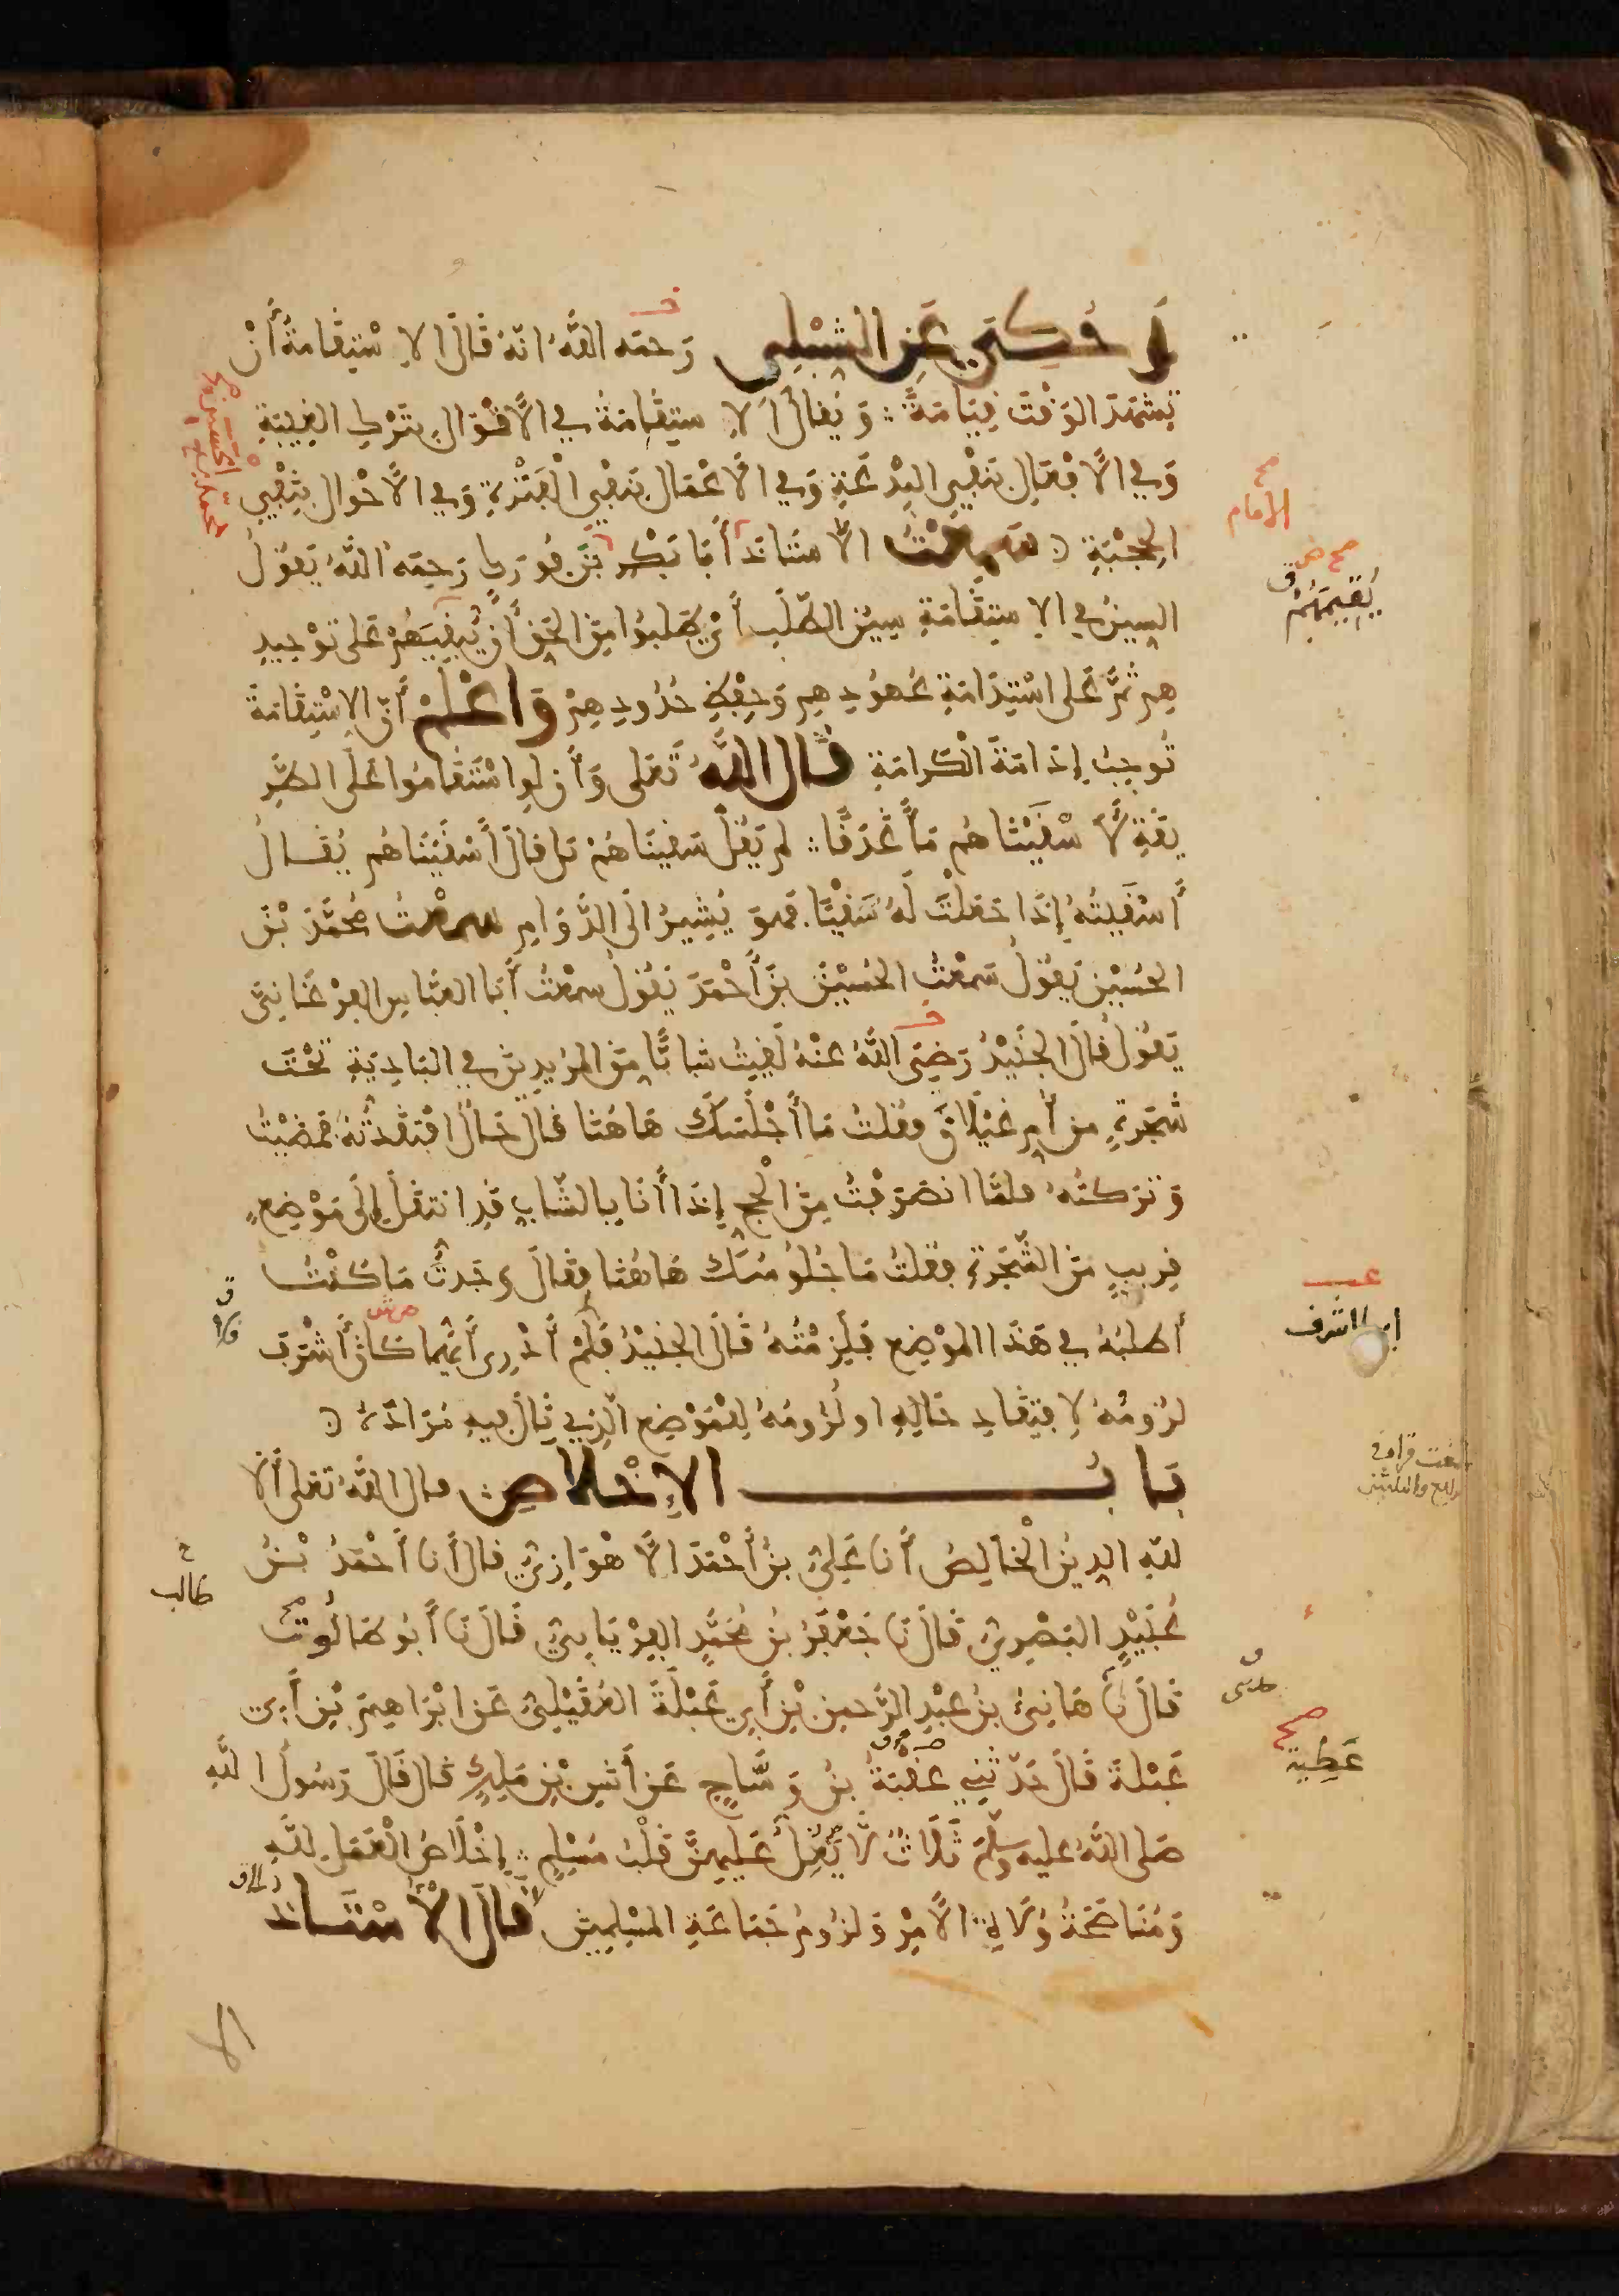 وَحُكِيَ عَنِ الشِّبْلِي رَحمَه اللَّهُ انّهُ قَالَ الاِسْتِقَامَةُ أَنْ
تَشْهَدَ الوَقْتَ قِيَامَةً وَيُقَالُ الاِستِقَامَةُ في الأَقْوَالِ بِتَرْكِ الغِيبَةِ
وَفي الأَفْعَالِ بِنَفْيِ البِدْعَةِ وَفي الأَعْمَالِ بِنَفْيِ الْفَتْرَةِ وَفي الأَحْوَالِ بِنَفْيِ
الحِجْبَةِ سَمِعْتُ الأُستَاذَ أَبَا بَكْرِ بْنَ فُورَكٍ رَحِمَه اللَّهُ يَقُولُ
السِينُ في الاِستِقَامَةِ سِينُ الطَّلَبِ أَيْ طَلَبُوا مِنَ الحَقِّ أَنْ يُقِيمَهُمْ عَلى تَوْحِيدِ
هِم ثُمَّ عَلى اسْتِدَامَةِ عُهُودِهِم وَحِفْظِ حُدُودِهِمْ وَاعْلَمْ أَنّ الاِسْتِقَامَةَ
تُوجِبُ إِدَامَةَ الْكَرَامَةِ قَالَ اللَّهُ تَعَلى وَأَن لوِ اسْتَقَامُوا عَلَى الطَّرِ
يقَةِ لأَسْقَيْنَاهُم مَّآءً غَدَقًا لم يَقُلْ سَقَينَاهُمْ بَل قَالَ أَسْقَيْنَاهُم يُقَالُ
أَسْقَيتُهُ إِذَا جَعَلْتَ لَهُ سَقْيًا. فَهوَ يُشِيرُ الَى الدَّوَامِ سَمعْتُ مُحَمَّدَ بْنَ
الحُسَيْنِ يَقُولُ سَمِعْتُ الحُسَيْنَ بنَ أَحْمَدَ يَقُولُ سَمِعْتُ أَبَا العَبَّاسِ الفَرْغَانِيَّ
يَقُولُ قَالَ الجُنَيْدُ رَضِيَ اللَّهُ عَنْهُ لَقِيتُ شَابًّا مِنَ المُرِيدِينَ في البَادِيَةِ تَحْتَ
شَجَرَةٍ مِن أُمِ غَيْلَانَ فَقُلتُ مَا أَجْلَسَكَ هَاهُنَا فَقَالَ حَالٌ افْتَقَدْتُهُ فَمَضَيْتُ
وَتَرَكتُهُ فَلَمَّا انصَرَفْتُ مِنَ الْحَجِّ إِذَا أَنَا بِالشَّابِ قَدِ انتَقَلَ إِلَى مَوْضِعٍ
قَرِيبٍ مِنَ الشَّجَرَةِ فَقُلتُ مَا جُلُوسُكَ هَاهُنَا فَقَالَ وَجَدتُّ مَا كُنْتُ
أَطلُبُهُ في هَذَا المَوْضِعِ فَلَزِمْتُهُ قَالَ الجُنَيْدُ فَلَمْ أَدْرِي أَيُّهُما كَانَ أَشْرَفَ
لزُومُهُ لاِفْتِقَادِ حَالِهِ او لُزُومُهُ لِلْمَوْضِعِ الَّذِي نَالَ فِيهِ مُرَادَهُ
بَابُ الاِخْلَاصِ قال اللَّهُ تَعَلى أَلَا
لِلّهِ الدِينُ الْخَالِصُ أَنَا عَلِيُّ بنُ أَحْمَدَ الأَهْوَازِيُّ قَالَ أَنَا أَحْمَدُ بْنُ
عُبَيْدٍ البَصْرِيُّ قَالَ نَا جَعْفَرُ بنُ مُحَمَّدٍ الفِرْيَابِيُّ قَالَ نَا أَبُو طَالُوتَ
قَالَ نَا هَانِئُ بنُ عَبْدِ الرَّحمنِ بْنِ أَبِي عَبْلَةَ العُقَيْلِيُّ عَنِ ابْرَاهِيمَ بْنِ أَبِي
عَبْلَةَ قَالَ حَدّثَنِي عُقْبَةُ بنُ وَسَّاجٍ عَن أَنَسِ بْنِ مَلِكٍ قَالَ قَالَ رَسُولُ اللَّهِ
صَلى اللَّهُ عليه وسَلّمَ ثَلَاثٌ لَا يَغِلُّ عَلَيهِنَّ قَلْبُ مُسْلِمٍ إِخْلَاصُ الْعَمَلِ لِلَّهِ
وَمُنَاصَحَةُ وُلَاةِ الأَمْرِ وَلزُومُ جَمَاعَةِ المُسْلِمِينَ قَالَ الأُسْتَاذُ
صح
الامام
صح
يُقِيمَهُمْ
طالب
صح
عَطِيَّة
الا